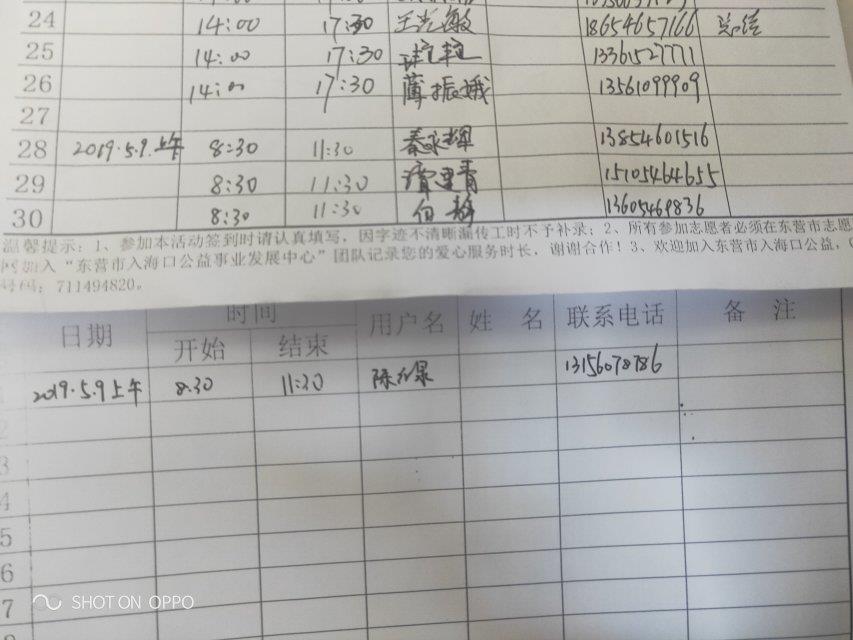 24 14:00 17:30 王光敏 18654657166
25 14:00 17:30 13361527771
26 14:00 17:30 薄振娥 13561099909
27
28 2019.5.9.上午 8:30 11:30 秦永辉 13854601516
29 8:30 11:30 15105464655
30 8:30 11:30 13605469836
温馨提示:1、参加本活动签到时请认真填写,因字迹不清晰漏传工时不予补录;2、所有参加志愿者必须在东营市志愿
网加入“东营市入海口公益事业发展中心”团队记录您的爱心服务时长,谢谢合作!3、欢迎加入东营市入海口公益,
号码:711494820。
日期 时间 用户名 姓 名 联系电话 备 注
开始 结束
2019.5.9上午 8.30 11:30 13156078786
2
3
4
5
6
7
SHOT ON OPPO